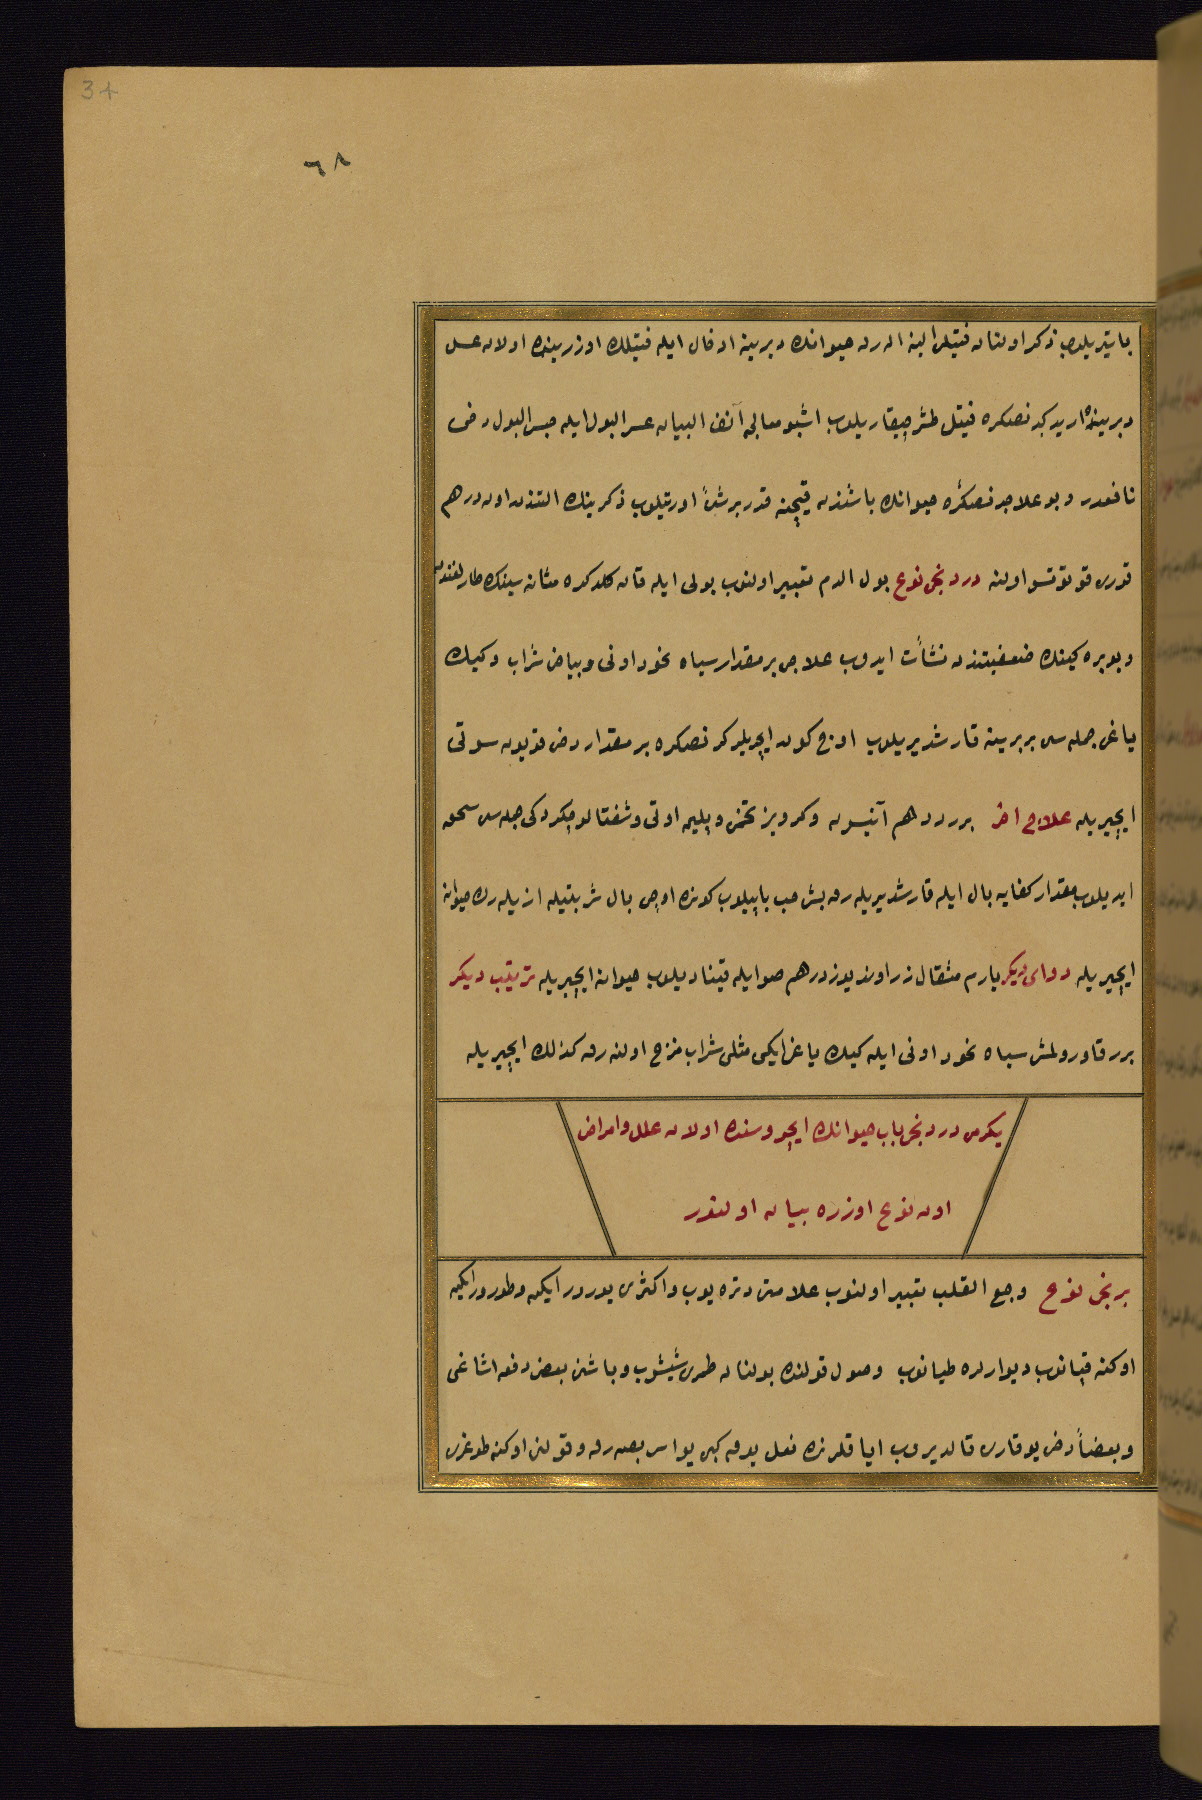 34
٦٨
باتيريلوب ذكر اولنان فتيلى الينه اله رق حيوانك دبرينه ادخال ايله فتيلك اوزرينده اولان عسل
دبرينده اريد كدنصكره فتيل طشره چيقاريلوب اشبو معالجه آنف البيان عسر البول ايله حبس البول دخى
نافعدر و بو علاجدنصكره حيوانك باشندن قيچنه قدر برشئ اورتيلوب ذكرينك التندن اون درهم
قدرى قويوتسو اولنه دردنجى نوع بول الدم تعبير اولنوب بولى ايله قان كلدكده مثانه سينك طارلغندن
و بوبره كينك ضعفيتندن نشأت ايدوب علاجى بر مقدار سياه نخود اونى و بياض شراب و كيك
ياغى جمله سى بربرينه قارشديريلوب اوچ كون ايچيريلدكدنصكره بر مقدار دخى قويون سوتى
ايچيريله علاج اخر برر درهم آنيسون و كروېز تخمى و پليم اوتى و شفتالو چكردكى جمله سى سحق
ايديلوب مقدار كفايه بال ايله قارشديريله رق بش حب ياپيلوب كونده اوچى بال شربتيله ازيله رك حيوانه
ايچيريله دواى ديكر يارم مثقال زراوند يوز درهم صو ايله قيناديلوب حيوانه ايچيريله ترتيب ديكر
برر قاورولمش سياه نخود اونى ايله كيك ياغى ايكى مثلى شراب مزج اولنه رق كذلك ايچيريله
يكرمى دردنجى باب حيوانك ايچروسنده اولان علل و امراض
اون نوع اوزره بيان اولنور
برنجى نوع وجع القلب تعبير اولنوب علامتى دتره يوب و اكثرى يورور ايكن و طورور ايكن
اوكنه قپانوب ديوارلره طيانوب و صول قولنده بولنان طمرى شيشوب و باشى بعض دفعه اشاغى
و بعضاً دخى يوقارى قالديروب اياقلرنده نعل يوق كبى يواش بصه رق و قولنى اوكنه طوغرى